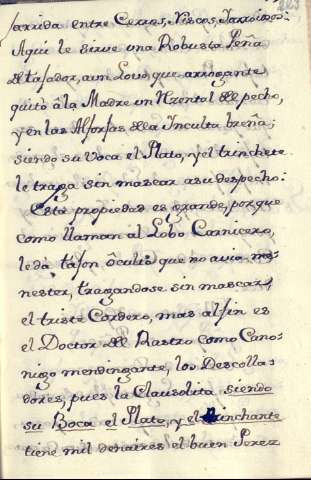 sarrida entre Cerros, Riscos, Jarroidos:
Aqui le sirve una Robusta Peña
de tajador, a un Lovo, que arrogante
quitò â la Madre un Nzental del pecho,
y en las Alforjas de la Inculta breña;
siendo su Voca el Plato, y el trinchete
le traga sin mascar a su despecho:
Esta propiedad es grande, porque
como llaman al Lobo Carnicero,
le da tajon ôculto que no avia me-
nester, tragandose sin mascar,
el triste Cordero, mas al fin es
el Doctor del Rastro como Cano-
nigo mendingante, los Descolla-
dores, pues la Clausolita, siendo
su Boca el Plato, y el trinchante
tiene mil denaires el buen Perez